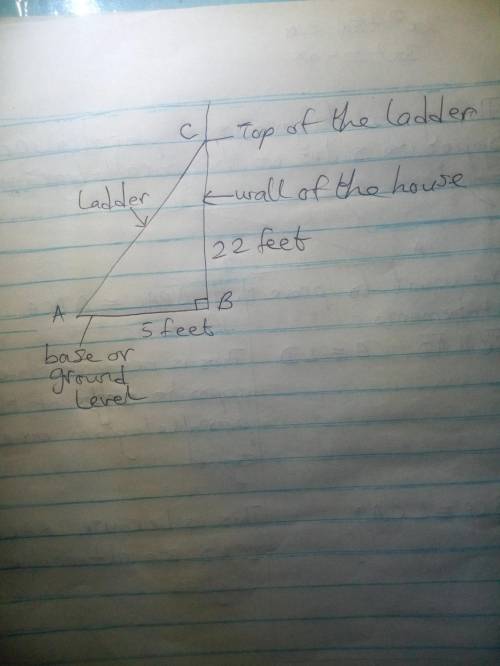 C Top of the Ladder
Ladder
wall of the house
22 feet
A
B
5 feet
base or
ground
Level